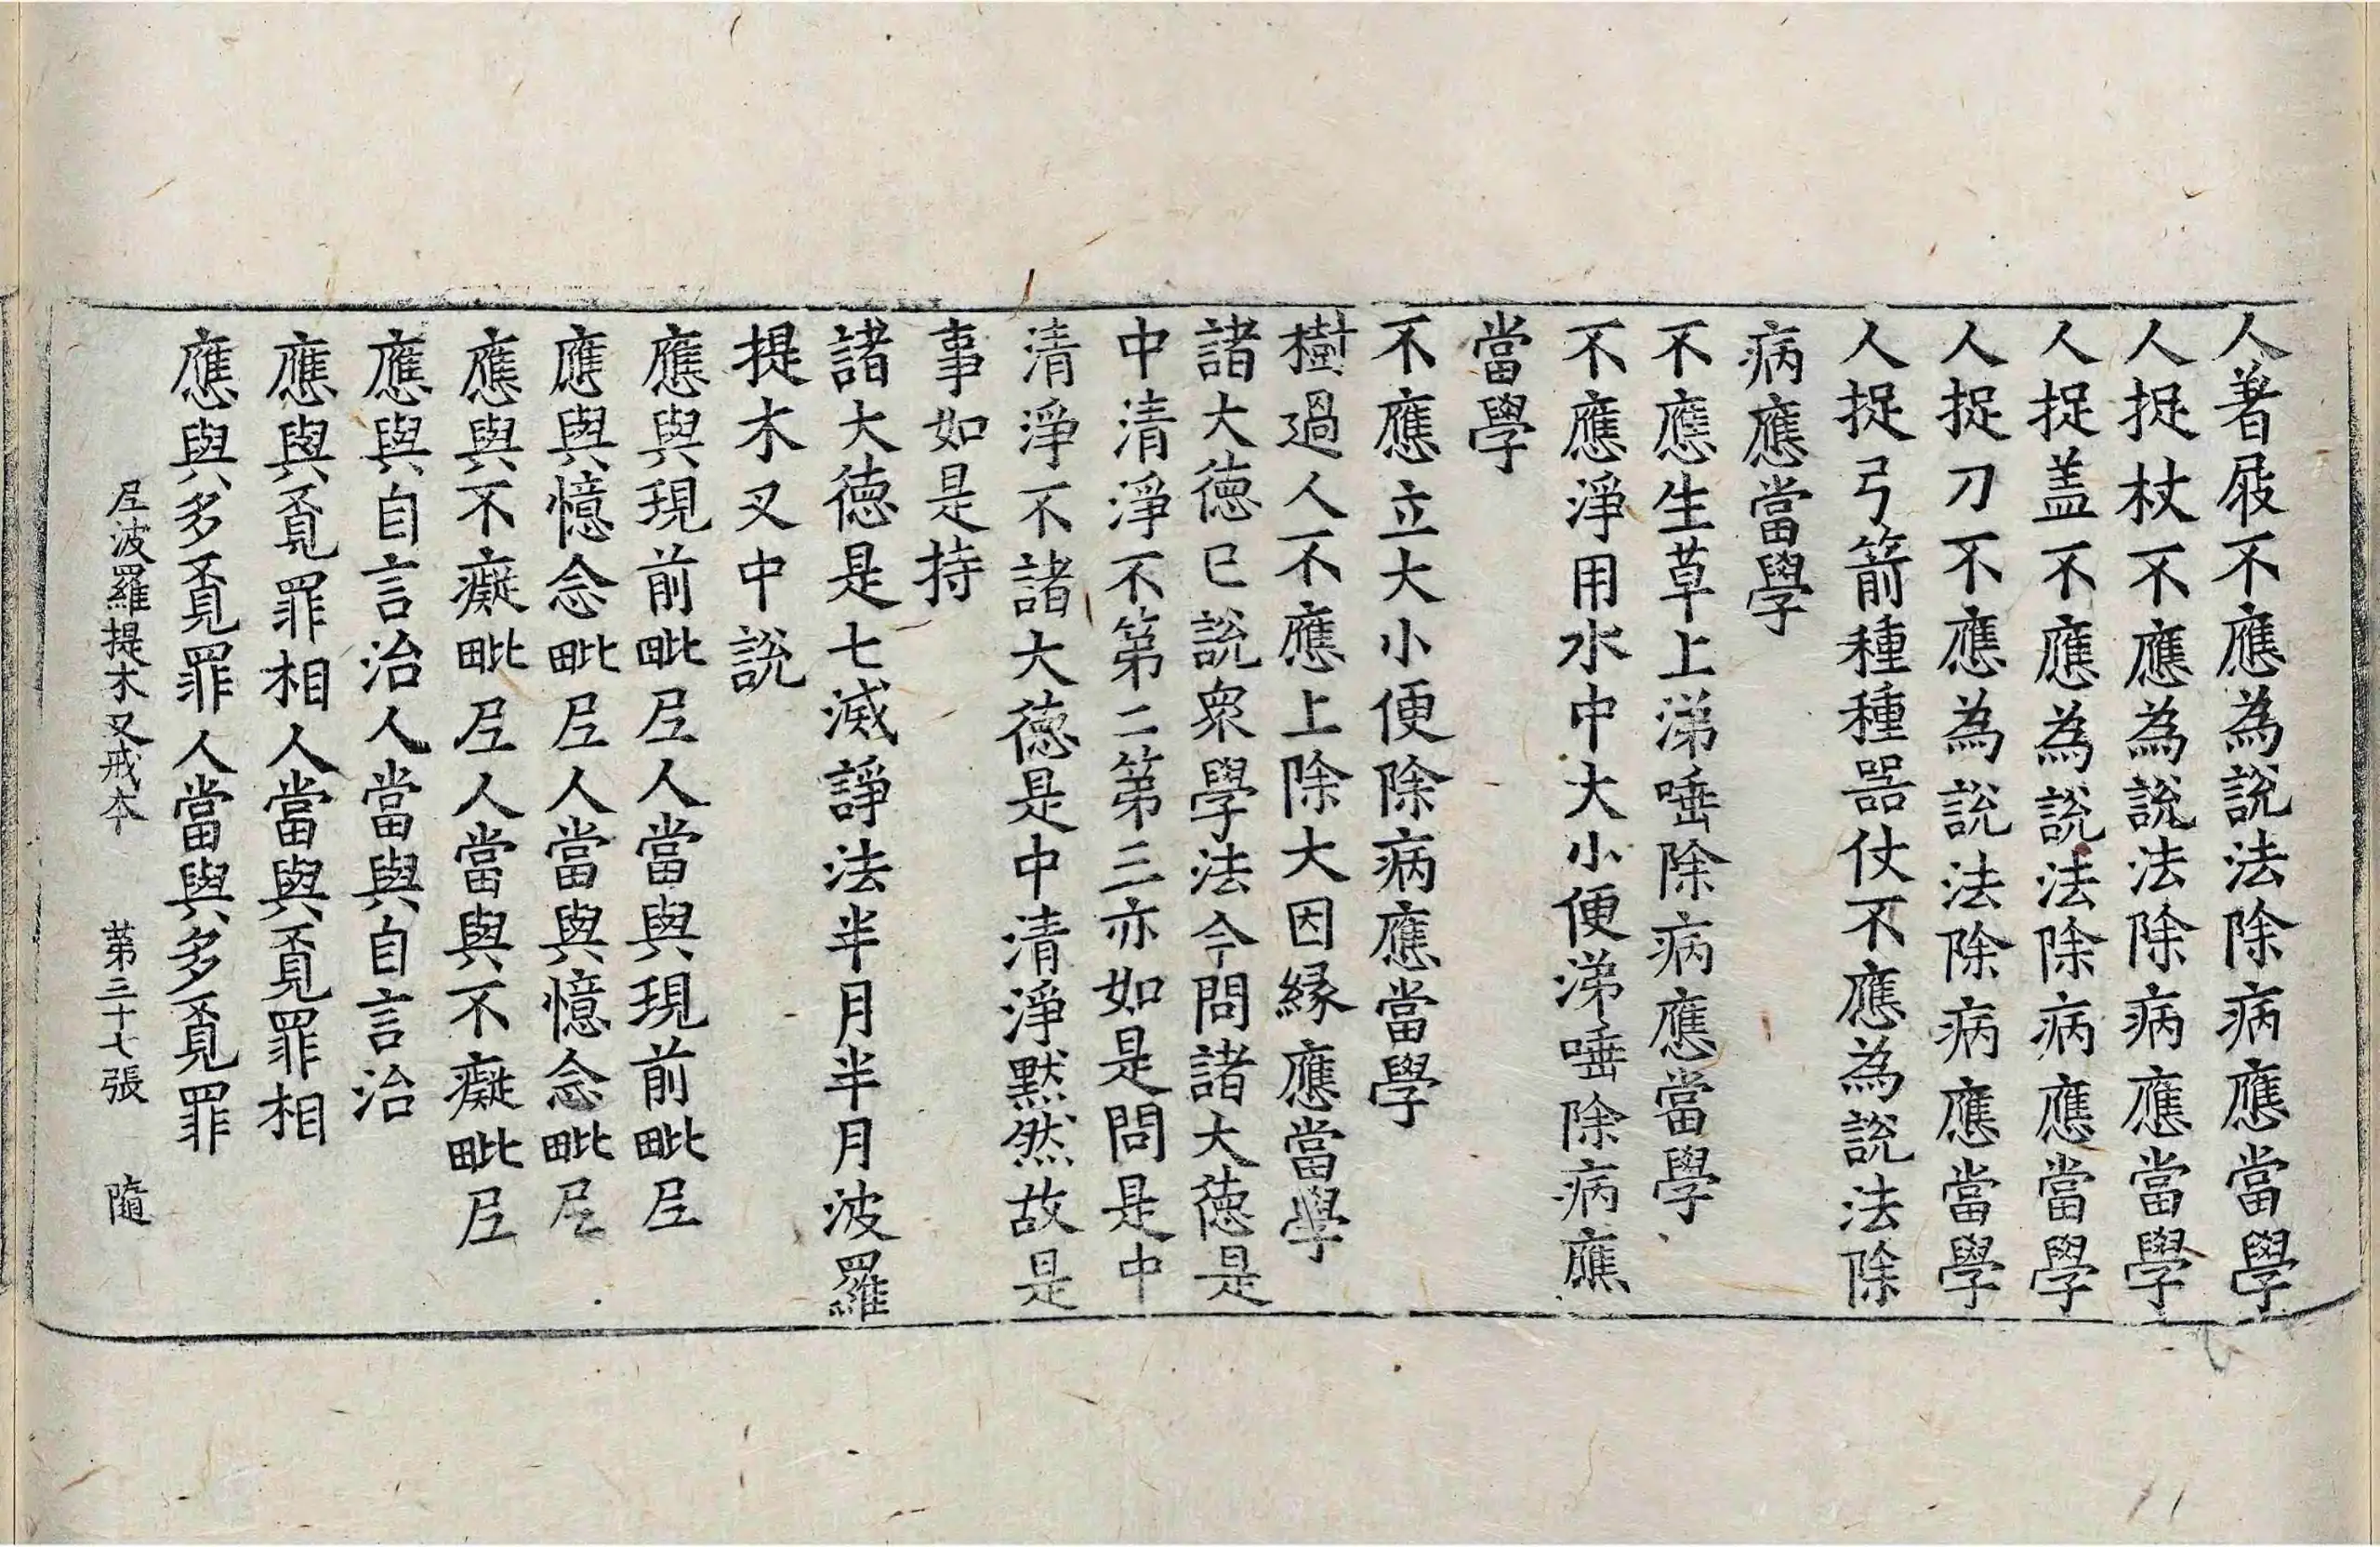 人著屐不應為說法除病應當學
人捉杖不應為說法除病應當學
人捉盖不應為說法除病應當學
人捉刀不應為說法除病應當學
人捉弓箭種種器仗不應為說法除
病應當學
不應生草上涕唾除病應當學
不應淨用水中大小便涕唾除病應
當學
不應立大小便除病應當學
樹過人不應上除大因縁應當學
諸大德已說衆學法今問諸大德是
中清淨不第二第三亦如是問是中
清淨不諸大德是中清淨黙然故是
事如是持
諸大德是七滅諍法半月半月波羅
提木叉中說
應與現前毗尼人當與現前毗尼
應與憶念毗尼人當與憶念毗尼
應與不癡毗尼人當與不癡毗尼
應與自言治人當與自言治
應與覔罪相人當與覔罪相
應與多覔罪人當與多覔罪
尼波羅提木叉戒本 第三十七張 隨